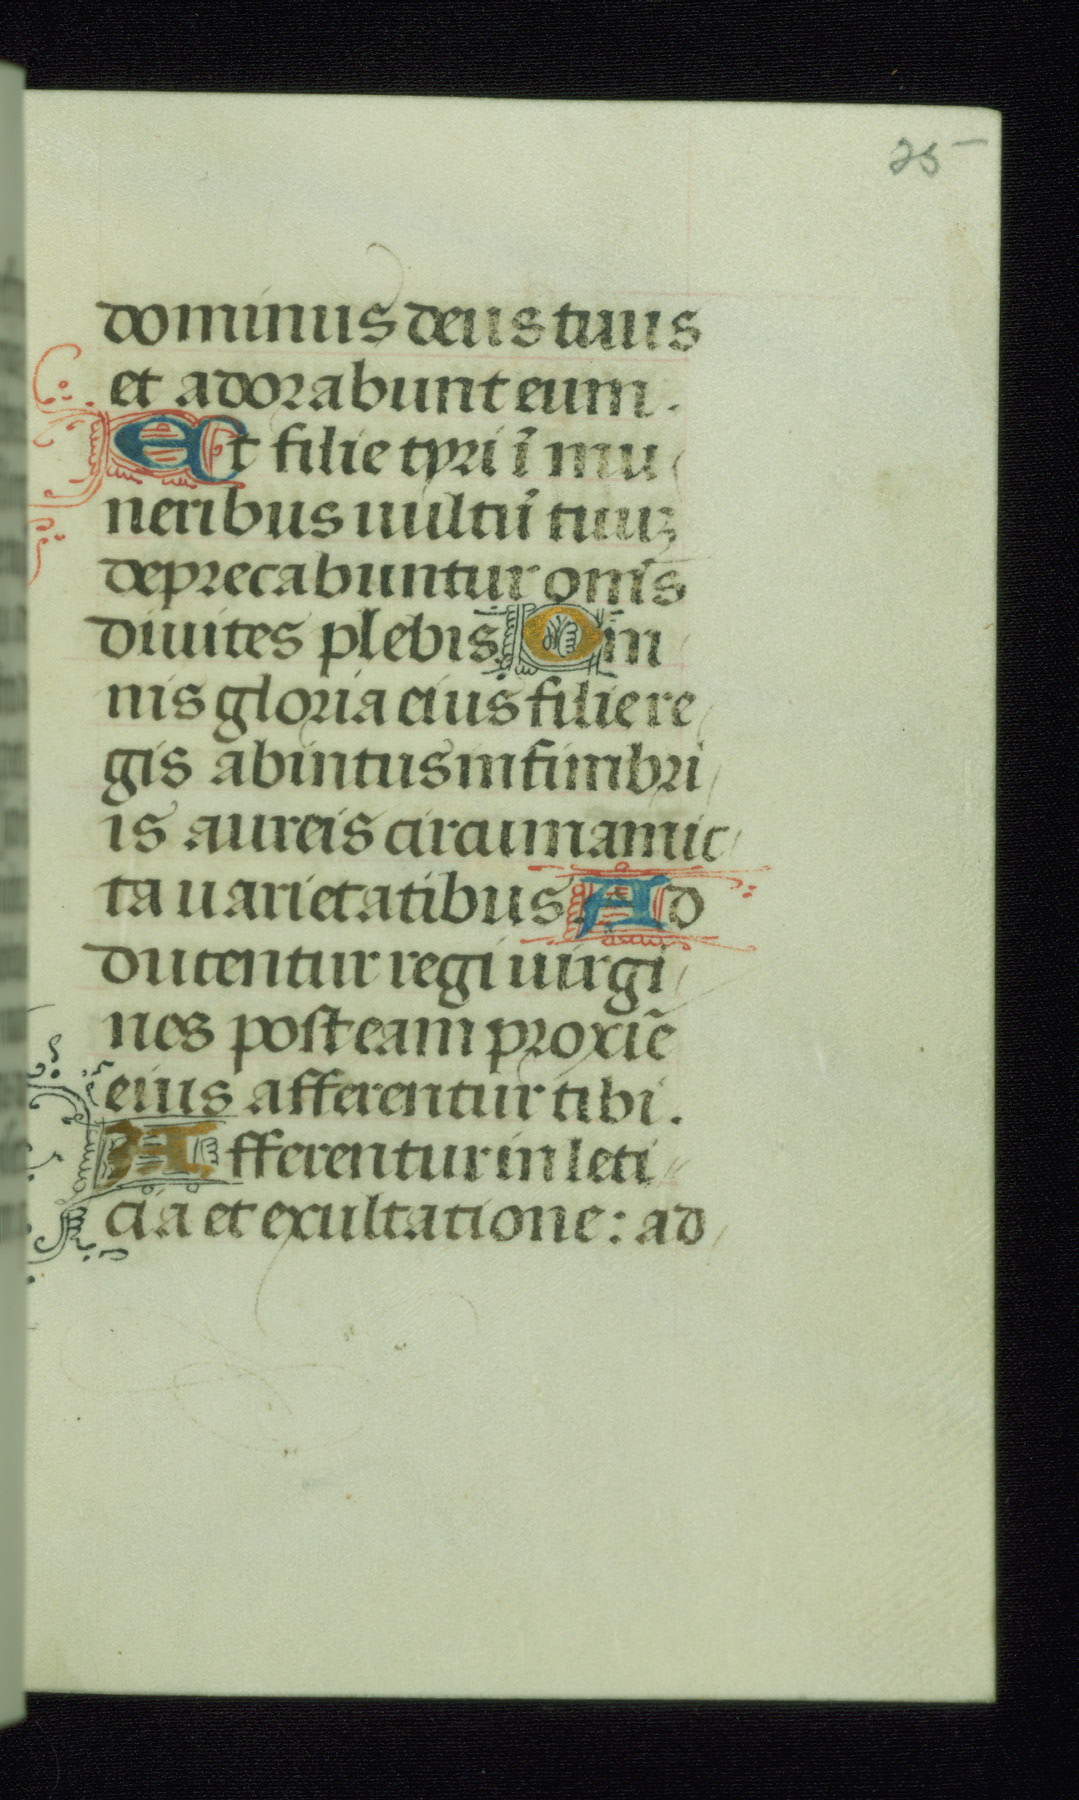 25
dominus deus tuus
et adorabunt eum.
Et filie tyri ī mu
neribus uultū tuuꝫ
deprecabuntur om̄s
diuites plebis. Om
nis gloria eius filie re
gis ab intus in fimbri
is aureis circumamic
ta uarietatibus. Ad
ducentur regi uirgi
nes post eam proxiē
eius afferentur tibi.
Afferentur in leti
cia et exultatione: ad